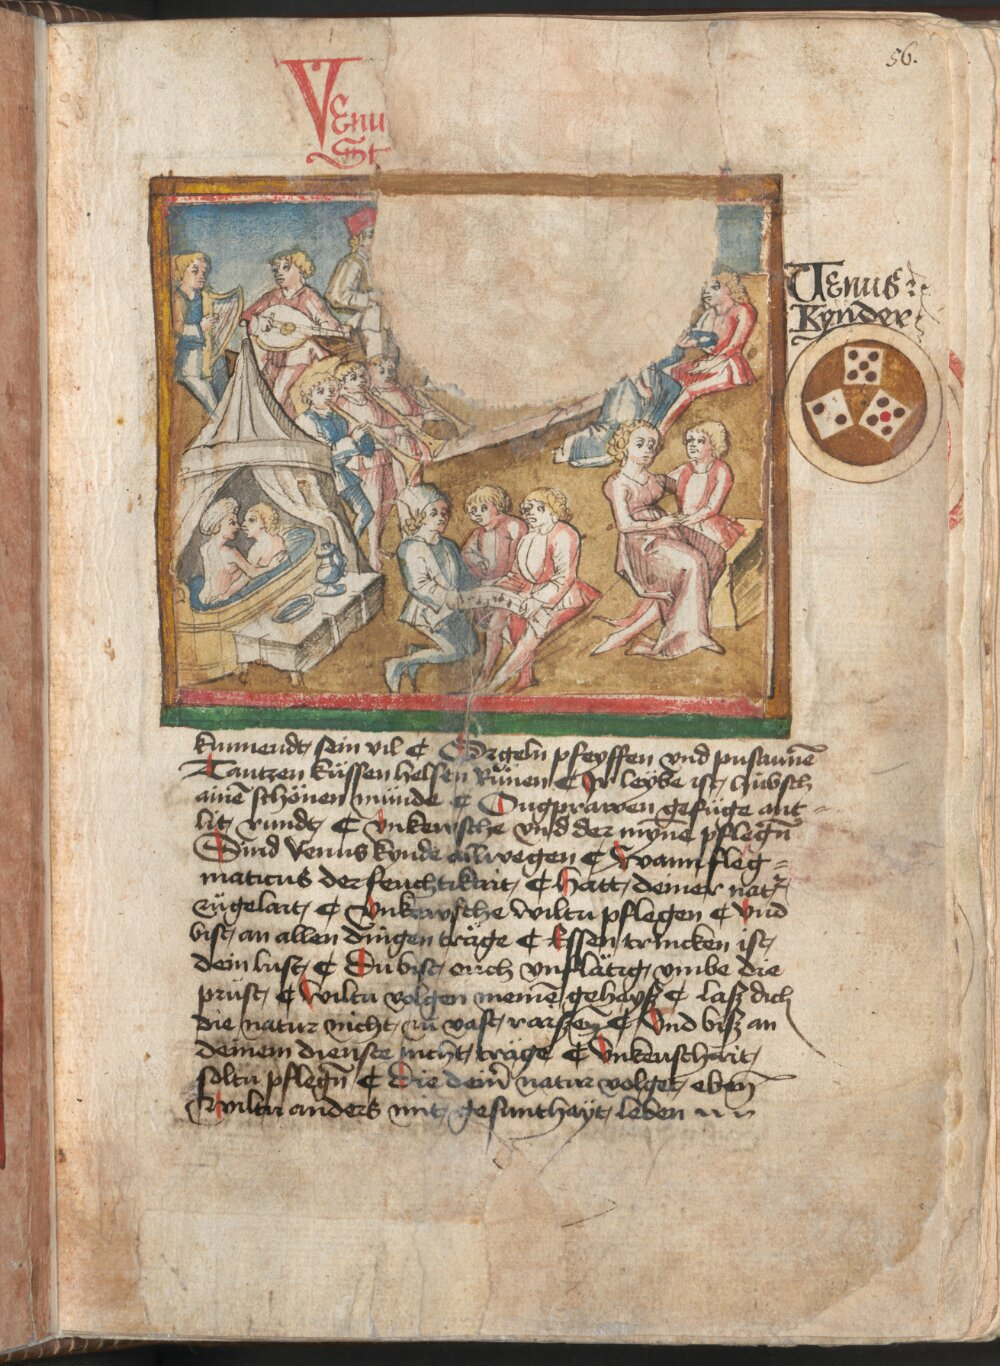 56.
VEnu
St
VEnus
Kynder
kumendt sein vil ₵ Orgeln pfeyffen vnd pusaunē
Tantzen küssen helsen Rünen ₵ Ir leybe ist hübsch
ainē schönen münde ₵ Ougprawen gefüge ant-
lit rundt ₵ Vnkewsche vnd der myne pflegn̄
Sind Venus kynde allwegen ₵ Wann fleg=
maticus der feuchtikait ₵ hatt deiner nat
zůgelait ₵ Vnkewsche wiltu pflegen ₵ Vnd
bist an allen dingen träge ₵ Essen trincken ist
dein lust ₵ Du bist ouch vnflätig vmbe die
prüst ₵ Wiltu volgen meinē gehayß ₵ laß dich
die natur nicht zu vast raißen ₵ Vnd biß an
deinem dienste nicht träge ₵ Vnkeuschait
soltu pflegn̄ ₵ Die deinr̄ natur volget ebenn̄
Wiltu anders mit gesunthayt leben